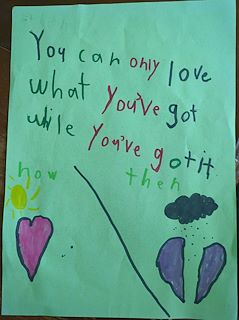 You can only love
what you've got
while you've got it.
now then